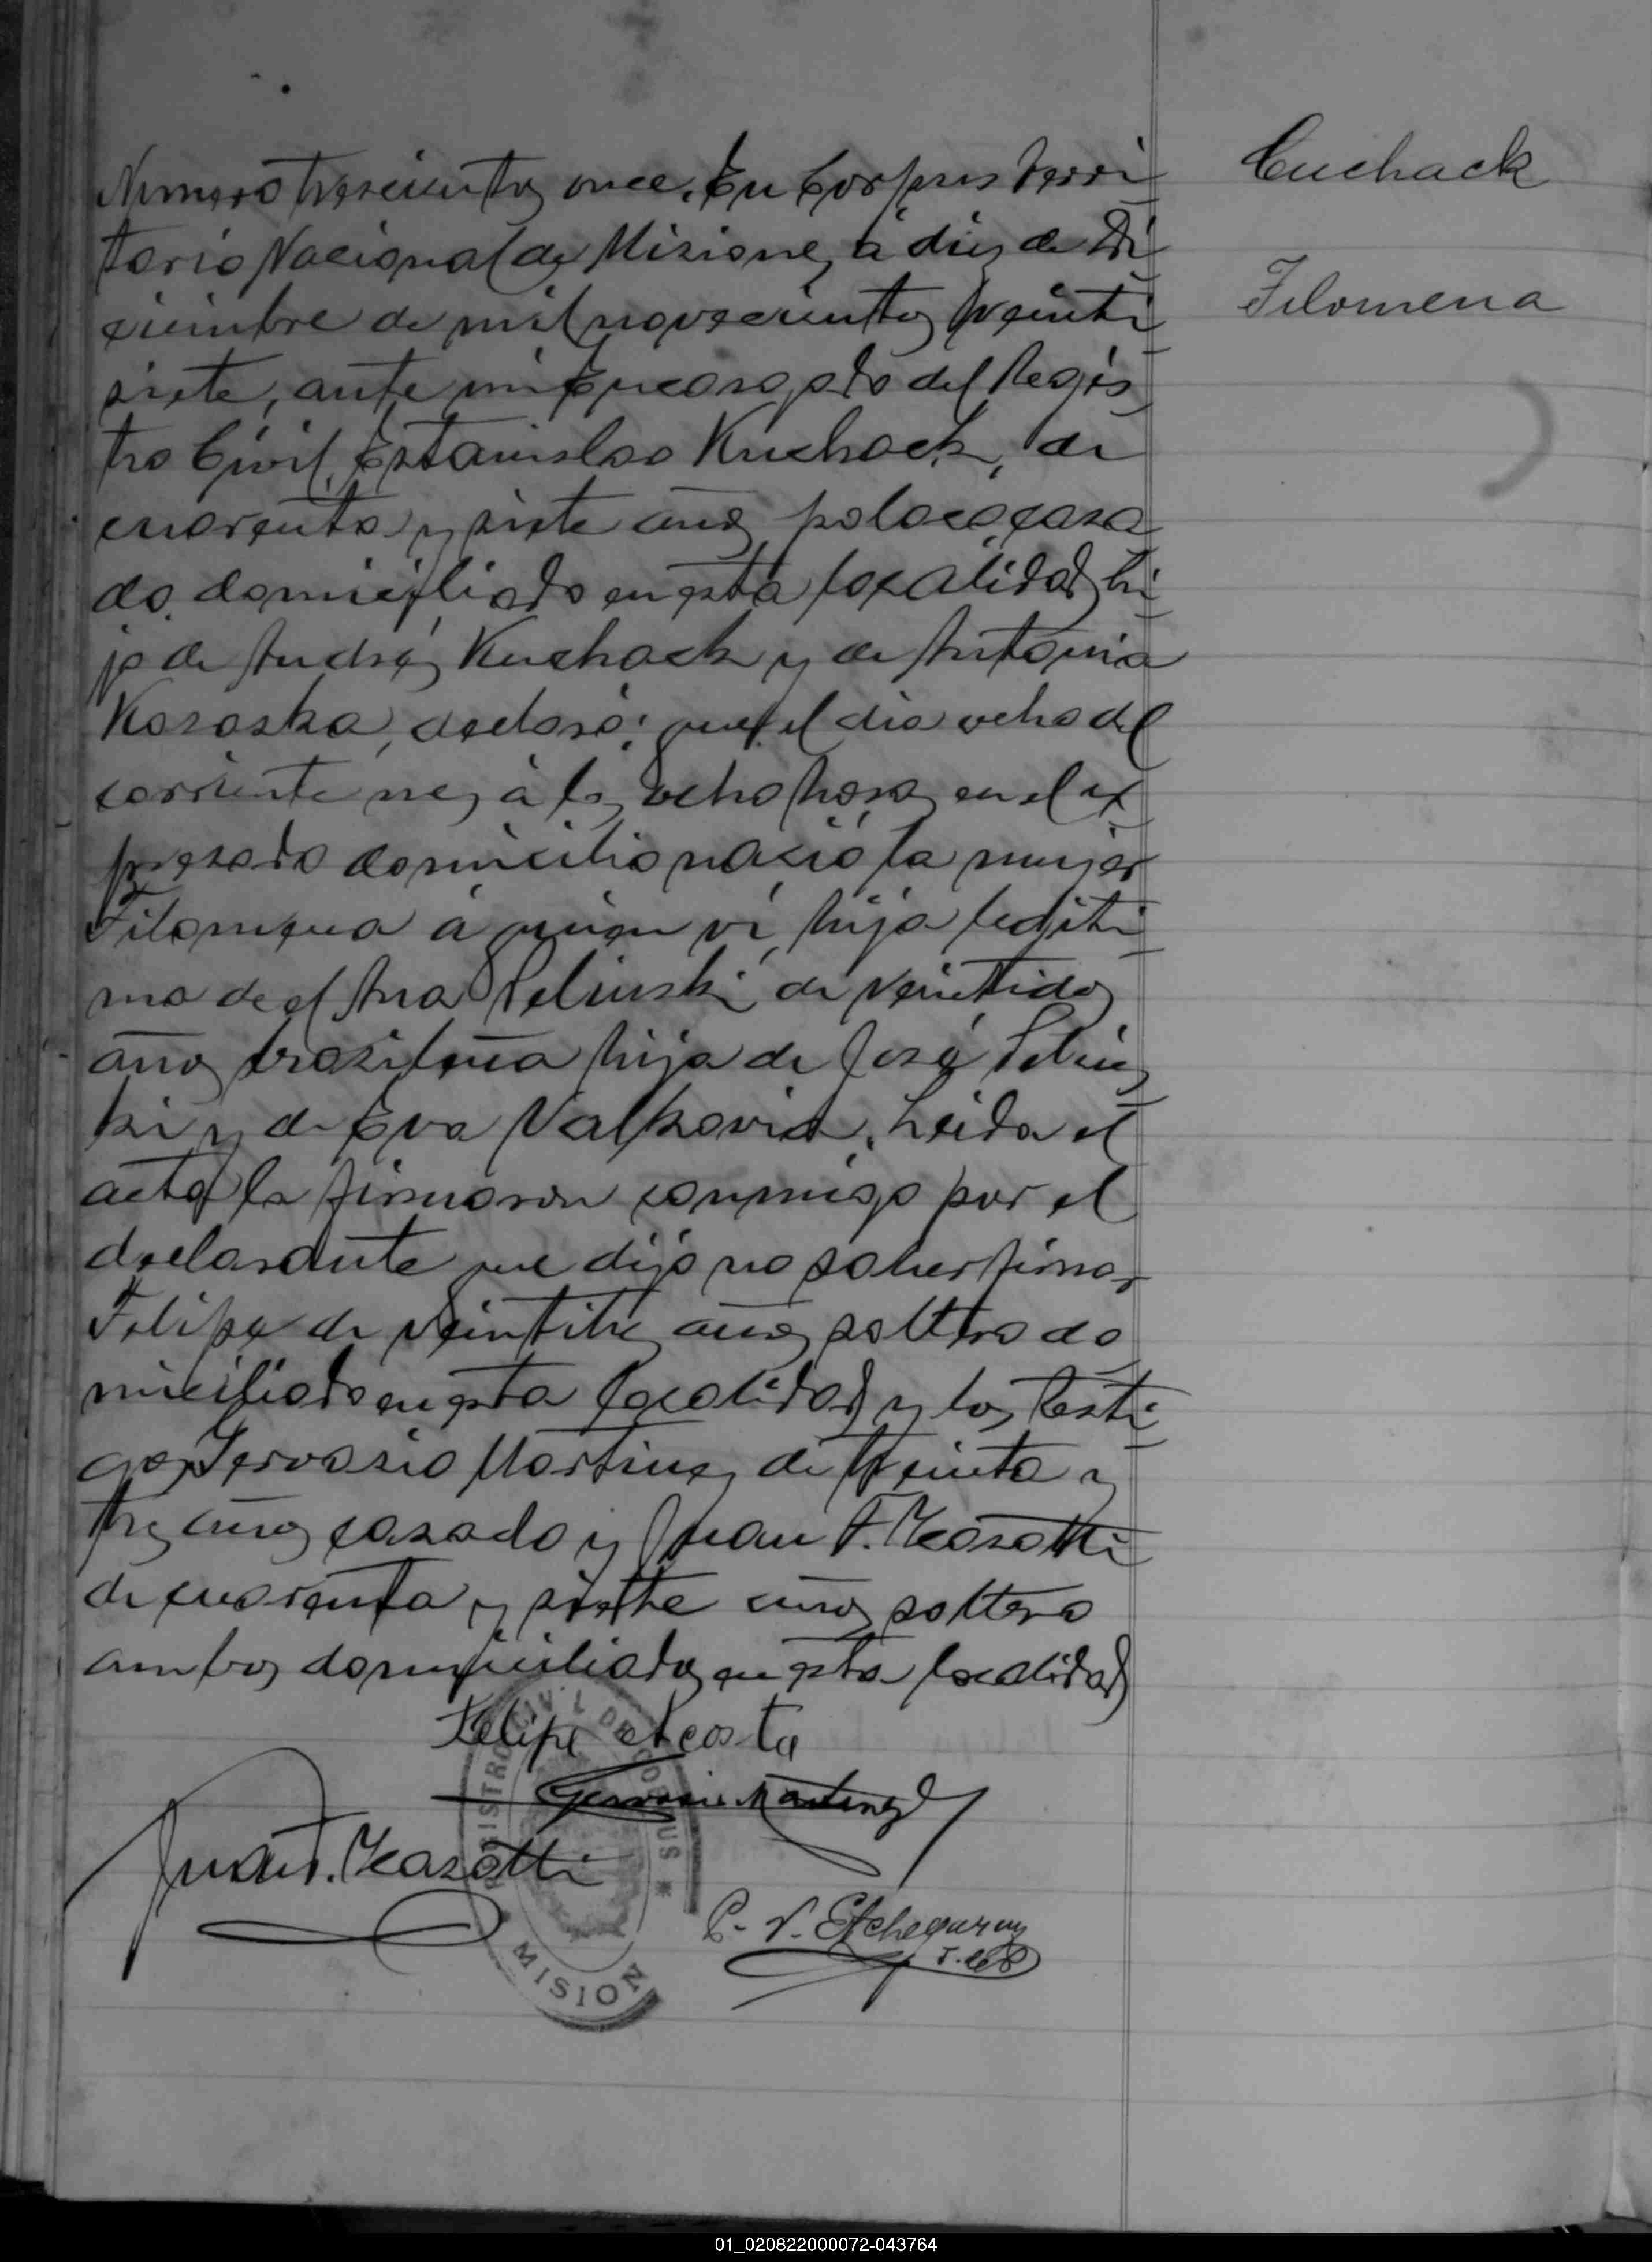 Cuchack
Filomena
Numero trescientos once. En Corpus Terri
torio Nacional de Misiones, á diez de Di
ciembre de mil novecientos veinti
siete, ante mi Encargado del Regis
tro Civil, Estanislao Kuchack, de
cuarenta y siete años, polaco, casa
do, domiciliado en esta localidad, hi
jo de Andrés Kuchack y de Antonia
declaró: que el dia ocho del
corriente mes á las ocho horas en el ex
presado domicilio nació la mujer
Filomena á quien vi, hija legiti
ma de el Ana Pelinski de veintidos
años brasileña hija de José Pelins
ki y de Eva Valkovia. Leida el
acta la firmaron conmigo por el
declarante que dijo no saber firmar
Felipe de años soltero do
miciliado en esta localidad y los testi
gos Gervasio Martinez de treinta y
tres años casado y Juan F. Mazotti
de cuarenta y siete años soltero
ambos domiciliados en esta localidad
Felipe Acosta
Gervasio Martinez
Juan F. Mazotti
P. V. Etchegaray
REGISTRO CIVIL DE CORPUS * MISION
01_020822000072-043764